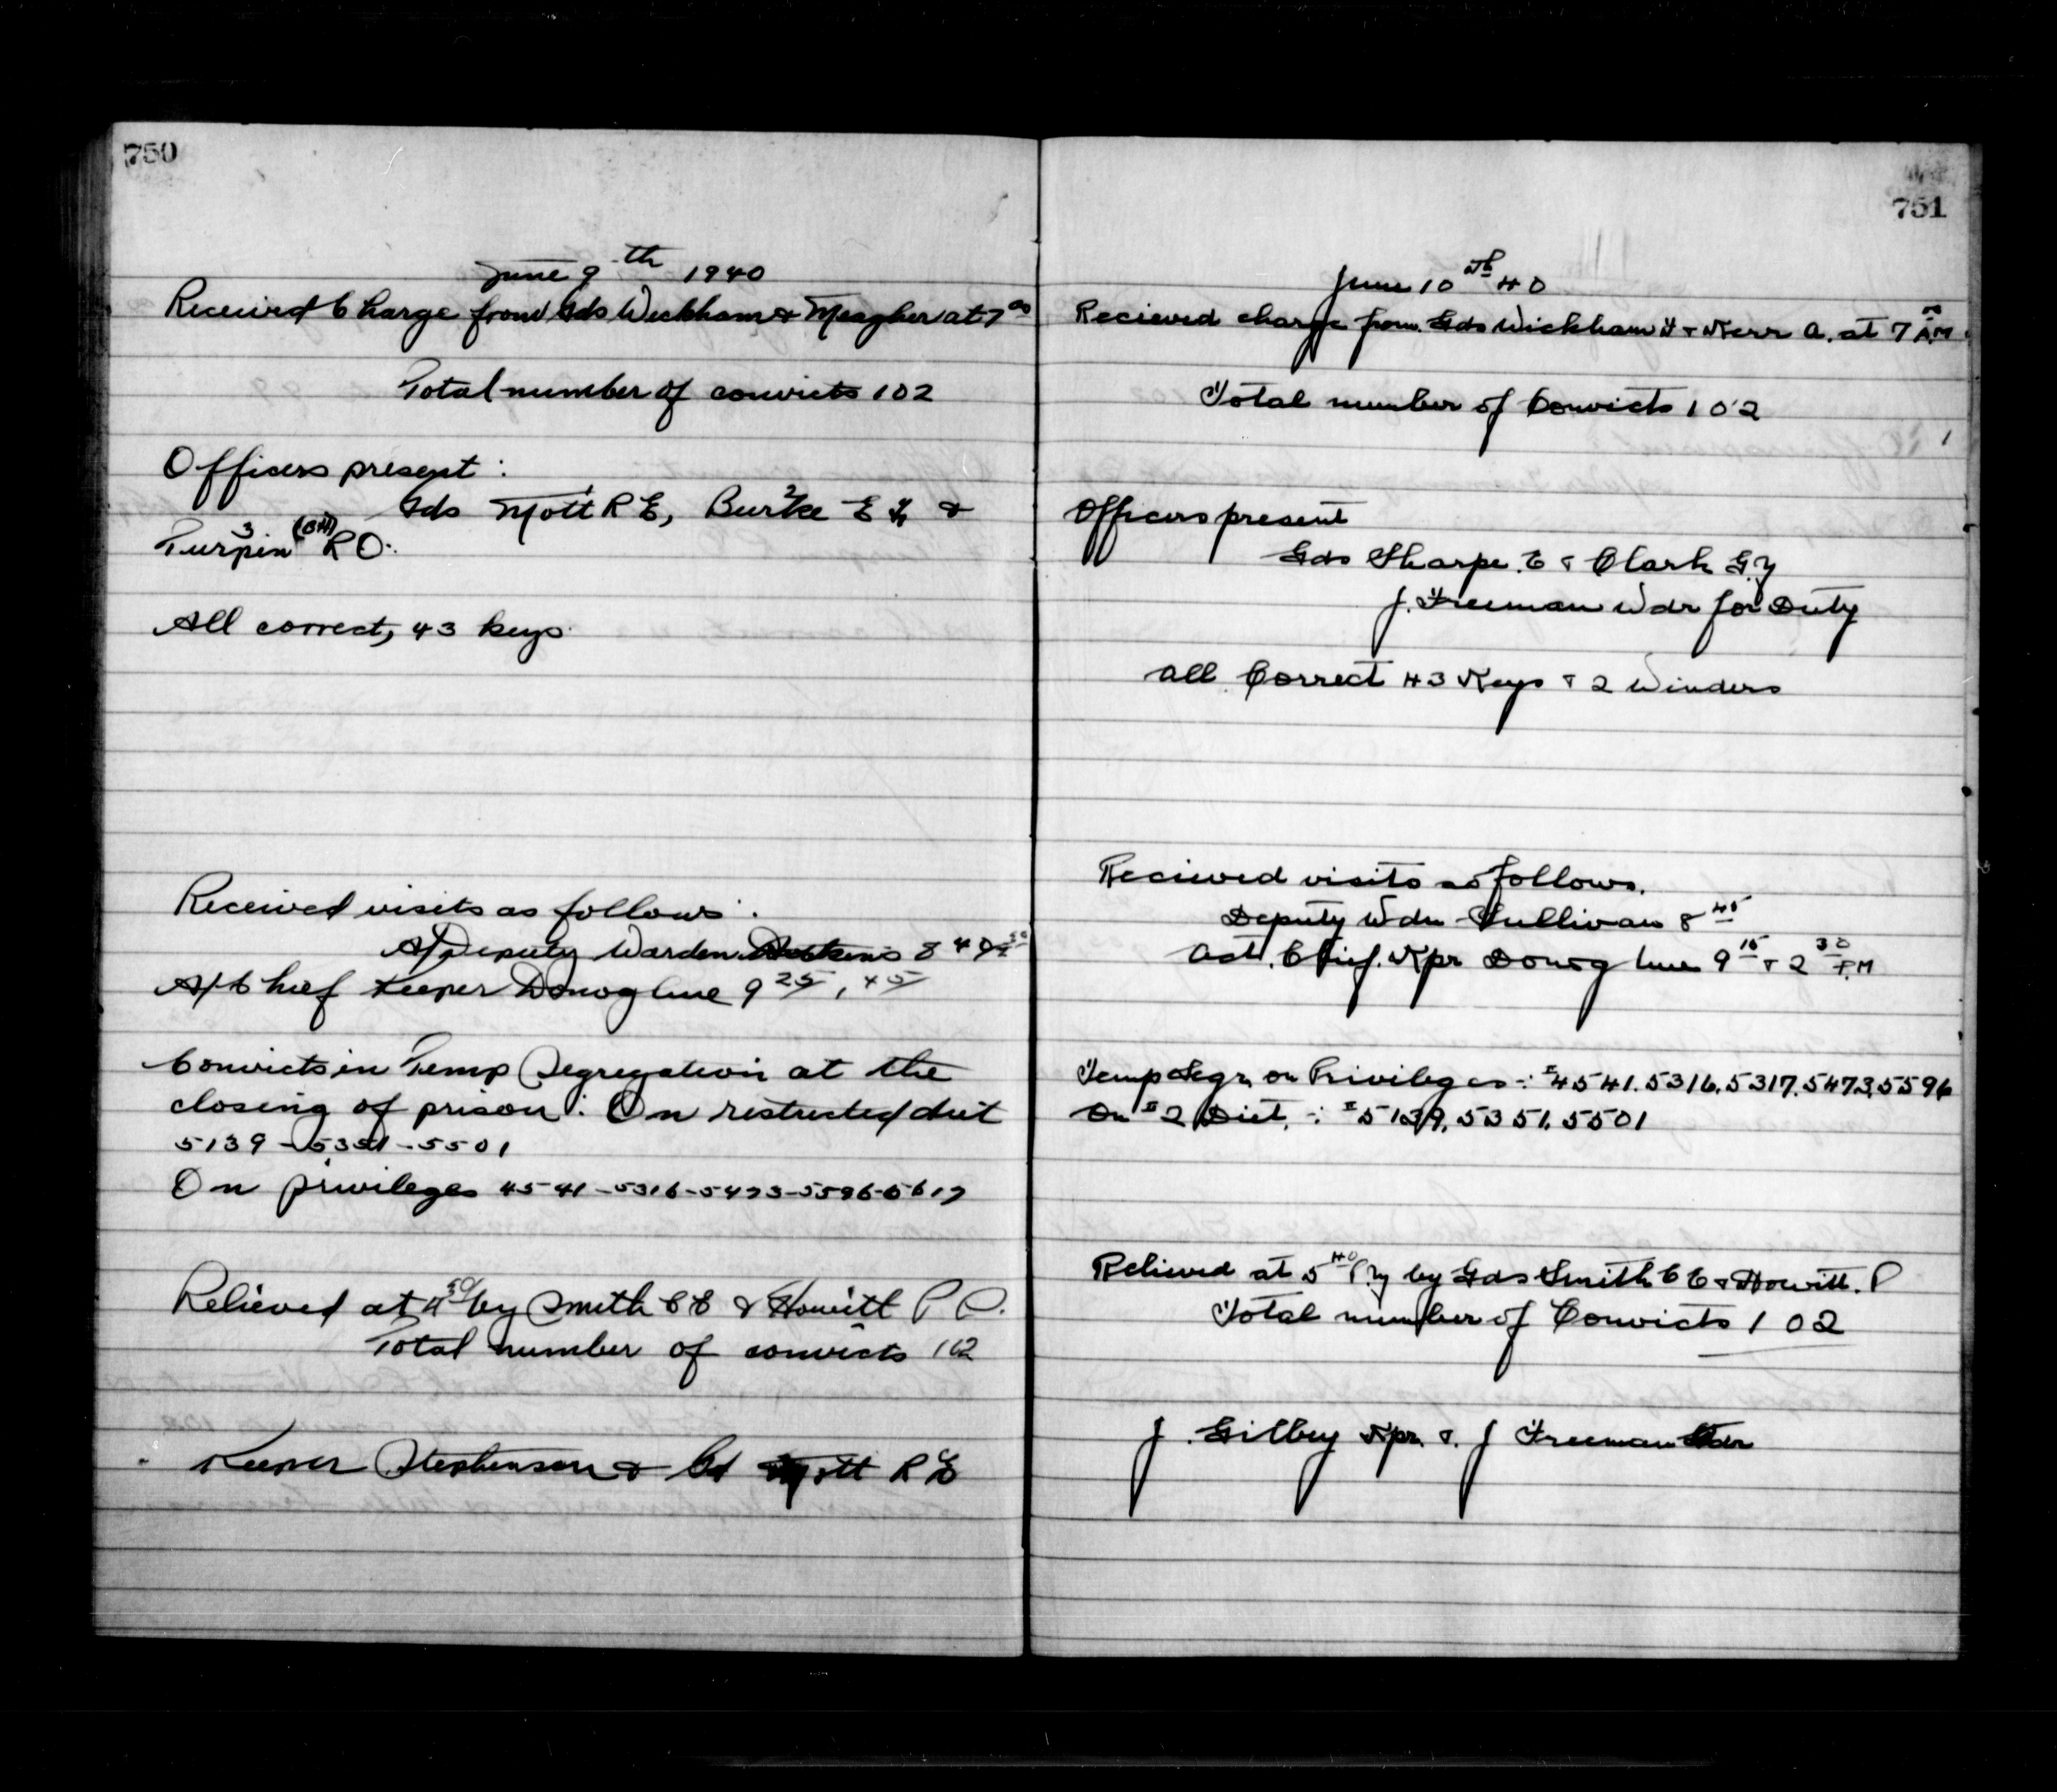 750
June 9th 1940
Received Charge from Gds Wickham & Meagher at 7 00
Total number of convicts 102
Officers present :
Gds Mott 1 R E, Burke 2 E &
Turpin 3 R O.
All correct, 43 keys.
Received visits as follows :
A/Deputy Warden 8 40
A/Chief Keeper Donoghue 9 25, 45
Convicts in Temp Segregation at the
closing of prison : On restricted diet
5139 - 5351 - 5501
On privileges 4541 - 5316 - 5473 - 5596 -
Relieved at 4 30 by Smith C E & Howitt P O.
Total number of convicts 102
Keeper Stephenson & Gd Mott R E
751
June 10th 40
Recieved charge from Gds Wickham H & Kerr A. at 7 00 A.M.
Total number of Convicts 102
Officers present
Gds Sharpe. E & Clark G.Y
J. Freeman Wdr for Duty
All Correct 43 Keys & 2 Winders
Recieved visits as follows.
Deputy Wdn Sullivan 8 45
Act. Chief. Kpr Donoghue 9 15 & 2 30 P.M
Temp Segr, on Privileges : # 4541. 5316. 5317. 5473. 5596
On # 2 Diet. : # 5139. 5351. 5501
Relieved at 5 40 P.M by Gds Smith C E & Howitt. P
Total number of Convicts 102
J. Gilbey Kpr. & J Freeman